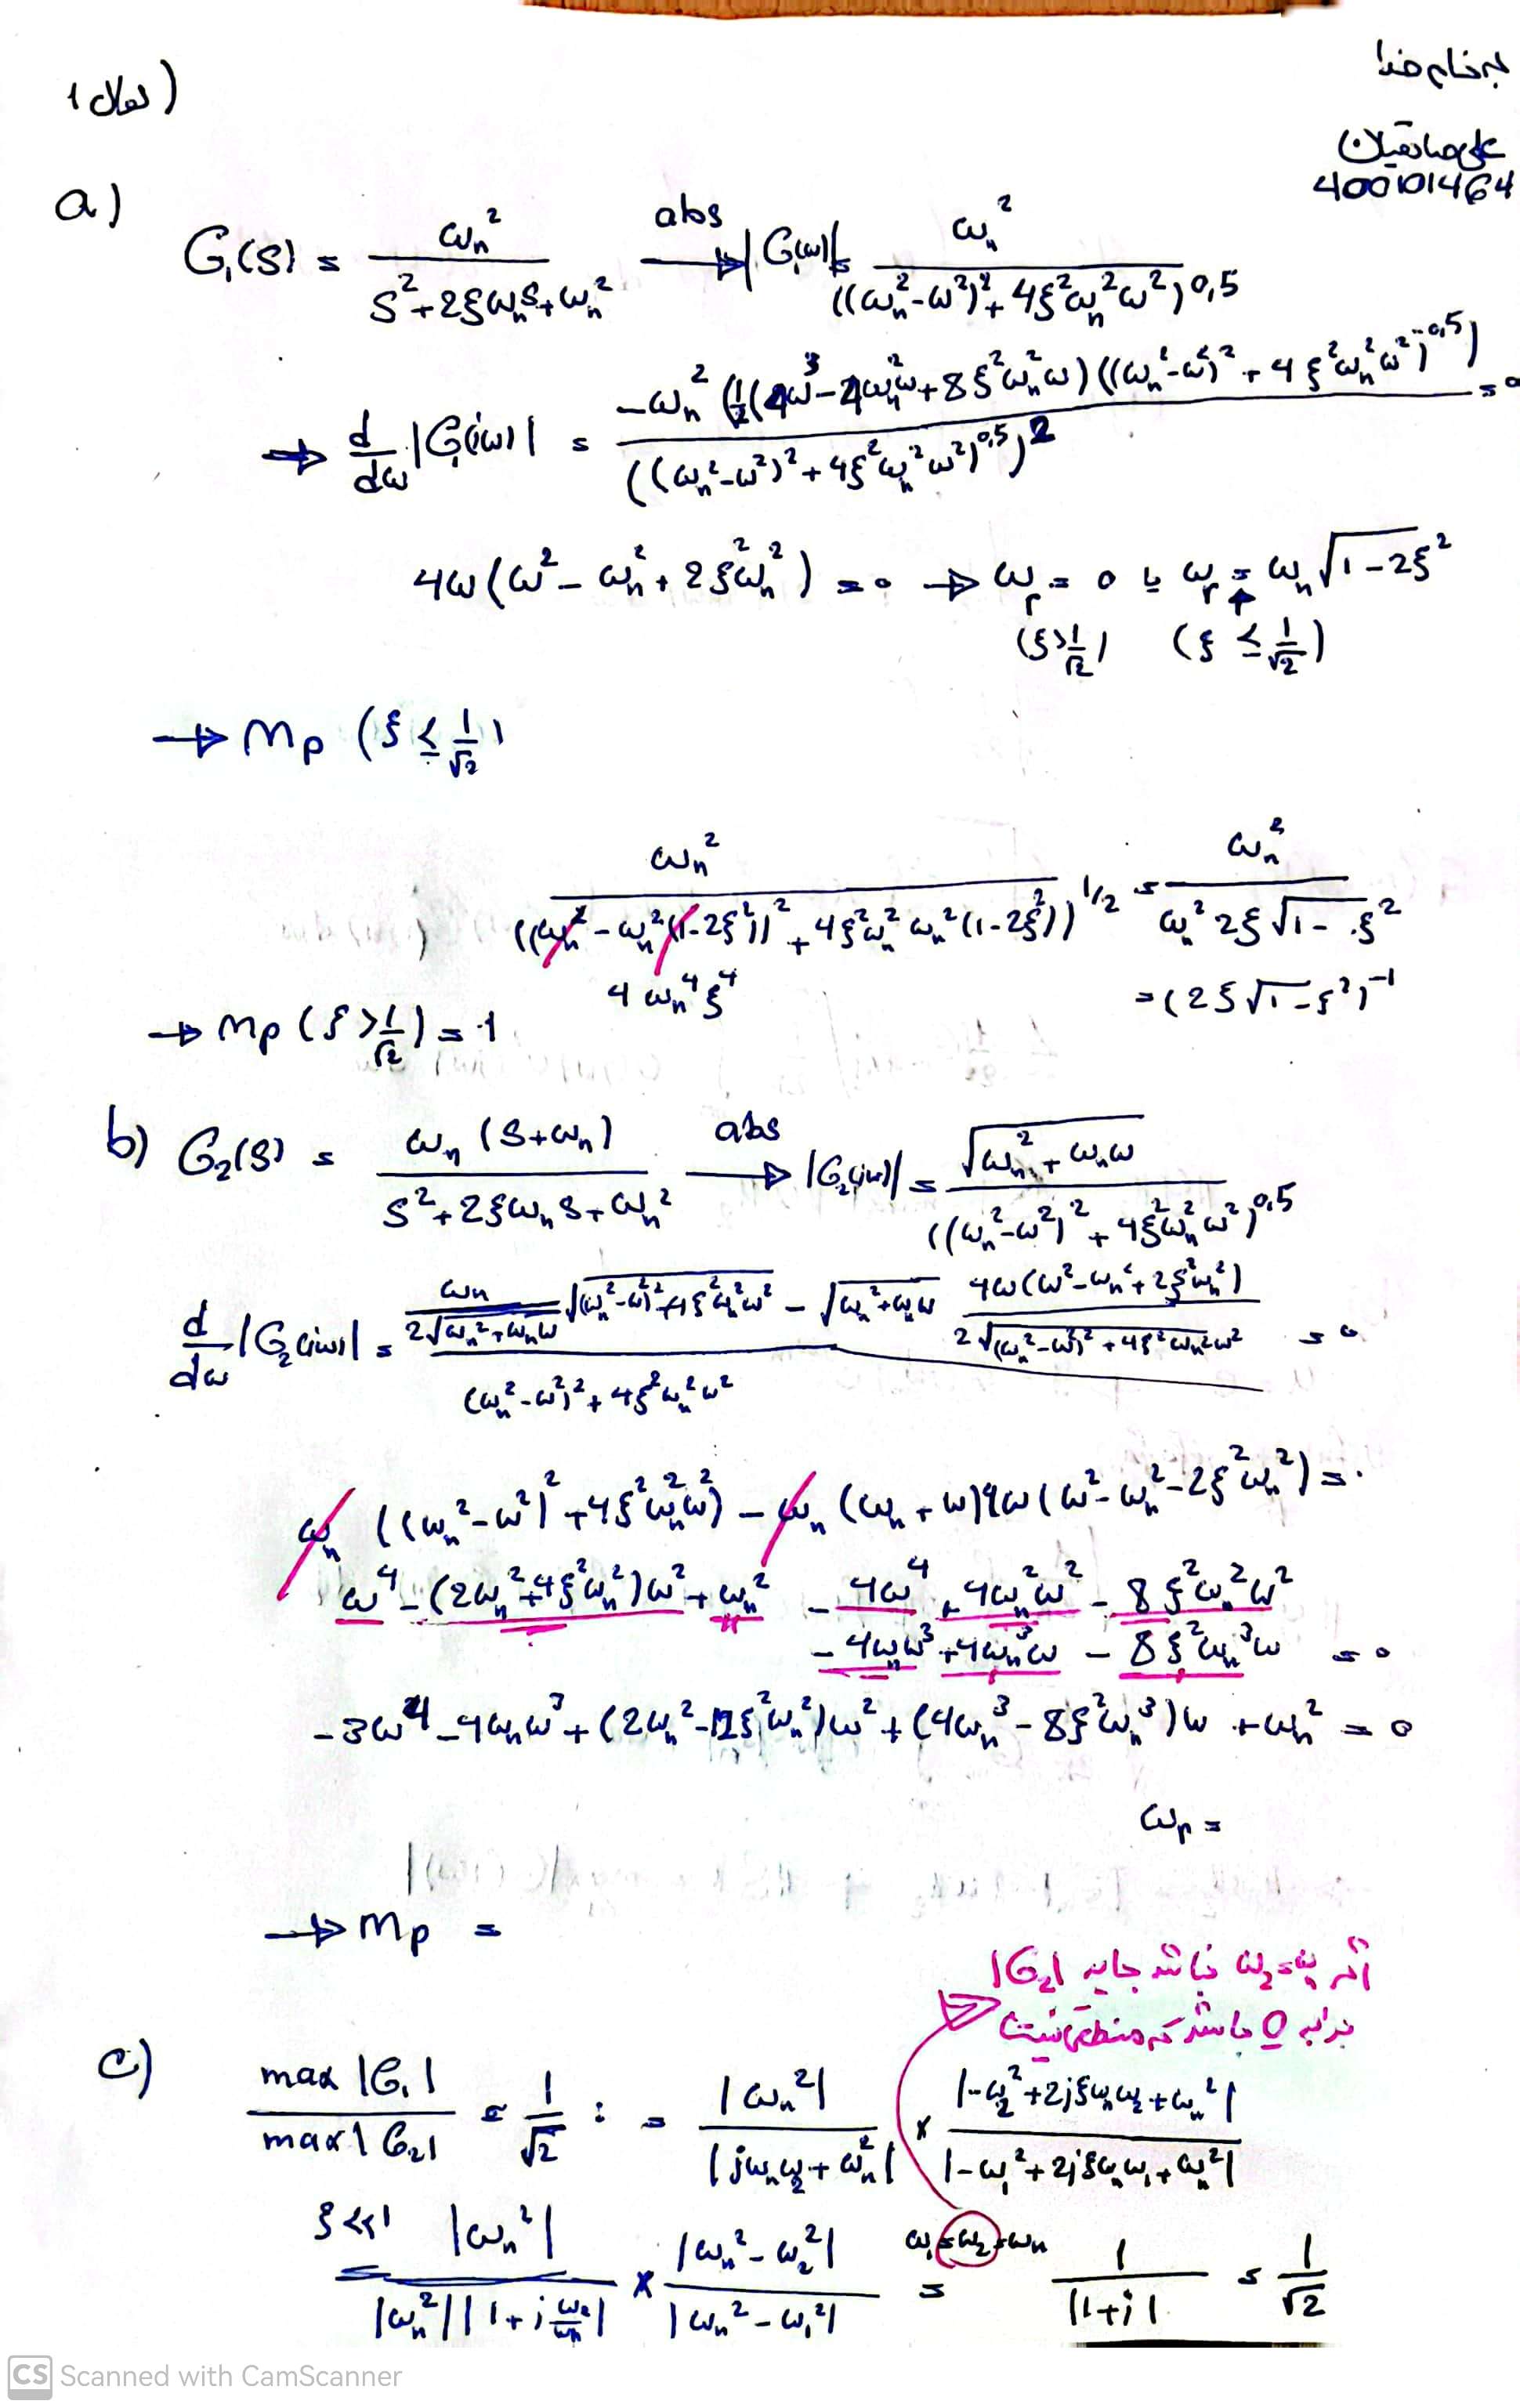 به نام خدا
علی صادقیان
400101464
سوال 1)
a)
G₁(s) = ωₙ² / (s² + 2ξωₙs + ωₙ²) —abs→ |G₁(ω)| = ωₙ² / ((ωₙ²-ω²)² + 4ξ²ωₙ²ω²)^0,5
⇒ d/dω |G₁(jω)| = -ωₙ² (1/2 (4ω³ - 4ωₙ²ω + 8ξ²ωₙ²ω) ((ωₙ²-ω²)² + 4ξ²ωₙ²ω²)^-0,5) / (((ωₙ²-ω²)² + 4ξ²ωₙ²ω²)^0,5)² = 0
4ω(ω² - ωₙ² + 2ξ²ωₙ²) = 0 → ωr = 0 یا ωr = ωₙ√(1-2ξ²)
(ξ > 1/√2) (ξ ≤ 1/√2)
→ Mp (ξ ≤ 1/√2)
ωₙ² / ((ωₙ² - ωₙ²(1-2ξ²))² + 4ξ²ωₙ²ωₙ²(1-2ξ²))^1/2 = ωₙ² / (ωₙ² 2ξ√(1-ξ²))
4ωₙ⁴ξ⁴
= (2ξ√(1-ξ²))⁻¹
→ Mp (ξ > 1/√2) = 1
b) G₂(s) = ωₙ(s+ωₙ) / (s² + 2ξωₙs + ωₙ²) —abs→ |G₂(jω)| = √(ωₙ² + ωₙω) / ((ωₙ²-ω²)² + 4ξ²ωₙ²ω²)^0,5
d/dω |G₂(jω)| = (ωₙ / (2√(ωₙ²+ωₙω)) √((ωₙ²-ω²)² + 4ξ²ωₙ²ω²) - √(ωₙ²+ωₙω) 4ω(ω²-ωₙ²+2ξ²ωₙ²) / (2√((ωₙ²-ω²)² + 4ξ²ωₙ²ω²))) / ((ωₙ²-ω²)² + 4ξ²ωₙ²ω²) = 0
ωₙ ((ωₙ²-ω²)² + 4ξ²ωₙ²ω²) - ωₙ (ωₙ+ω)4ω(ω²-ωₙ²-2ξ²ωₙ²) = 0
ω⁴ - (2ωₙ²+4ξ²ωₙ²)ω² + ωₙ² - 4ω⁴ + 4ωₙ²ω² - 8ξ²ωₙ²ω²
- 4ωₙω³ + 4ωₙ³ω - 8ξ²ωₙ³ω = 0
-3ω⁴ - 4ωₙω³ + (2ωₙ² - 12ξ²ωₙ²)ω² + (4ωₙ³ - 8ξ²ωₙ³)ω + ωₙ² = 0
ωr =
→ Mp =
اگر ω₂=ωₙ نباشد باید |G₂|
برابر 0 باشد که منطقی نیست
c) max|G₁| / max|G₂| = 1/√2 : = |ωₙ²| / |jωₙω₂ + ωₙ²| × |-ω₂² + 2jξωₙω₂ + ωₙ²| / |-ω₁² + 2jξωₙω₁ + ωₙ²|
ξ<<1 = |ωₙ²| / (|ωₙ²||1 + j ω₂/ωₙ|) × |ωₙ²-ω₂²| / |ωₙ²-ω₁²| ω₁=ω₂=ωₙ = 1 / |1+j| = 1/√2
CS Scanned with CamScanner